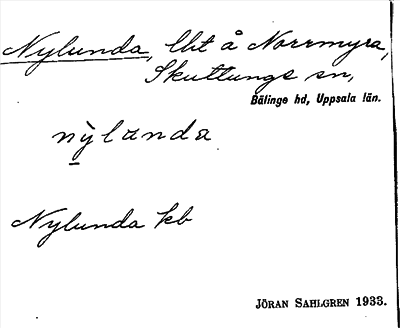 Nylunda, lht å Norrmyra,
Skuttunge sn,
Bälinge hd, Uppsala län.
nỳlanda
Nylunda kb
JÖRAN SAHLGREN 1933.